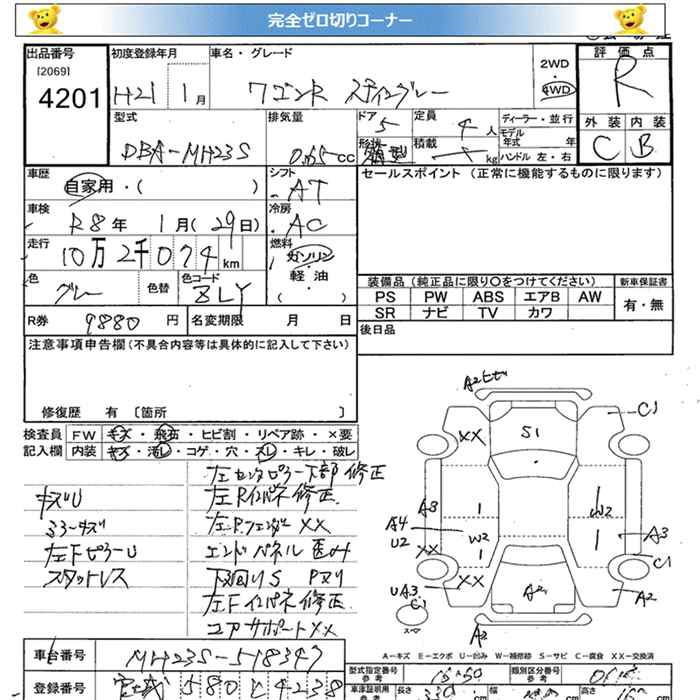 完全ゼロ切りコーナー
出品番号
[2069]
4201
初度登録年月
H21 1月
車名・グレード
ワゴンR スティングレー
2WD
4WD
評価点
R
型式
DBA-MH23S
排気量
0.65cc
ドア
5
定員
4人
ディーラー・並行
モデル
年式 年
ハンドル 左・右
形状
箱型
積載
kg
外装 内装
C B
車歴
自家用・( )
シフト
AT
セールスポイント (正常に機能するものに限ります)
車検
R8年 1月(29日)
冷房
AC
走行
10万2千074km
燃料
ガソリン
軽・油
( )
色
グレー
色替
色コード
ZLY
装備品 (純正品に限り〇をつけてください)
PS PW ABS エアB AW
SR ナビ TV カワ
新車保証書
有・無
R券 9880円
名変期限 月 日
後日品
注意事項申告欄(不具合内容等は具体的に記入して下さい)
修復歴 有 〔箇所 〕
検査員
記入欄
FW キズ・飛石・ヒビ割・リペア跡・×要
内装 キズ・汚レ・コゲ・穴・スレ・キレ・破レ
左センタピラー下部修正
キズU
左Rインパネ修正
ミラーキズ
左RフェンダXX
左FピラーU
エンドパネル凹み
スタットレス
下回りS Pヌリ
左Fインパネ修正
コアサポートXX
A2ヒビ
XX
S1
C1
A3
1
W2
A4
U2
W2
1
A3
XX
C1
XX
A2
A2
UA3
C1
スペア
A3
A-キズ E-エクボ U-凹み W-補修跡 S-サビ C-腐食 XX-交換済
車台番号
MH23S-518347
型式指定番号
参考
15450
類別区分番号
参考
登録番号
宮城 580 く 4238
車庫証明用
参考
長さ
339
cm
幅
cm
高さ